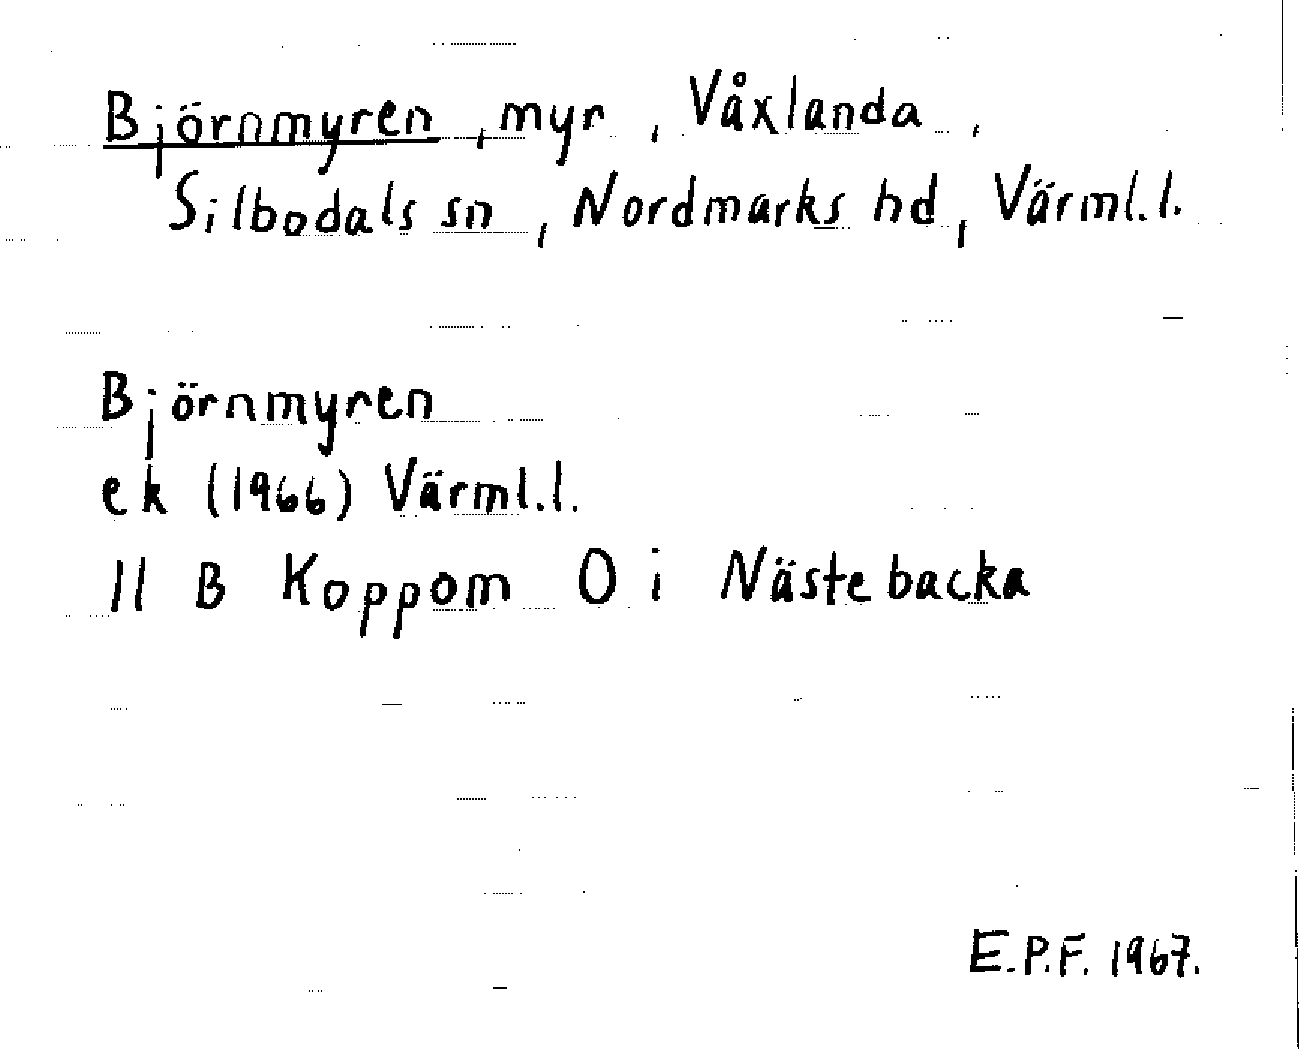 Björnmyren, myr, Våxlanda,
Silbodals sn, Nordmarks hd, Värml.l.
Björnmyren
ek (1966) Värml.l.
11 B Koppom O i Nästebacka
E.P.F. 1967.